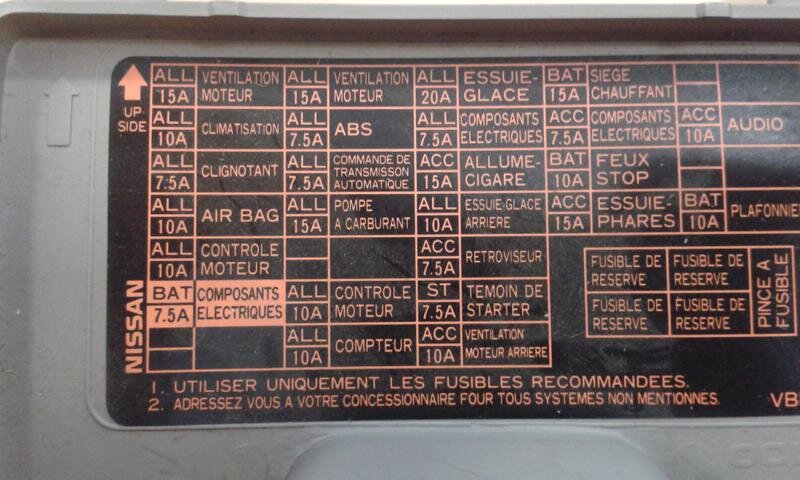 UP-SIDE
NISSAN
ALL 15A VENTILATION MOTEUR ALL 15A VENTILATION MOTEUR ALL 20A ESSUIE-GLACE BAT 15A SIEGE CHAUFFANT
ALL 10A CLIMATISATION ALL 7.5A ABS ALL 7.5A COMPOSANTS ELECTRIQUES ACC 7.5A COMPOSANTS ELECTRIQUES ACC 10A AUDIO
ALL 7.5A CLIGNOTANT ALL 7.5A COMMANDE DE TRANSMISSON AUTOMATIQUE ACC 15A ALLUME-CIGARE BAT 10A FEUX STOP
ALL 10A AIR BAG ALL 15A POMPE A CARBURANT ALL 10A ESSUIE-GLACE ARRIERE ACC 15A ESSUIE-PHARES BAT 10A PLAFONNIE
ALL 10A CONTROLE MOTEUR ACC 7.5A RETROVISEUR
BAT 7.5A COMPOSANTS ELECTRIQUES ALL 10A CONTROLE MOTEUR ST 7.5A TEMOIN DE STARTER
ALL 10A COMPTEUR ACC 10A VENTILATION MOTEUR ARRIERE
FUSIBLE DE RESERVE FUSIBLE DE RESERVE
FUSIBLE DE RESERVE FUSIBLE DE RESERVE
PINCE A FUSIBLE
1. UTILISER UNIQUEMENT LES FUSIBLES RECOMMANDEES.
2. ADRESSEZ VOUS A VOTRE CONCESSIONNAIRE POUR TOUS SYSTEMES NON MENTIONNES.
VB